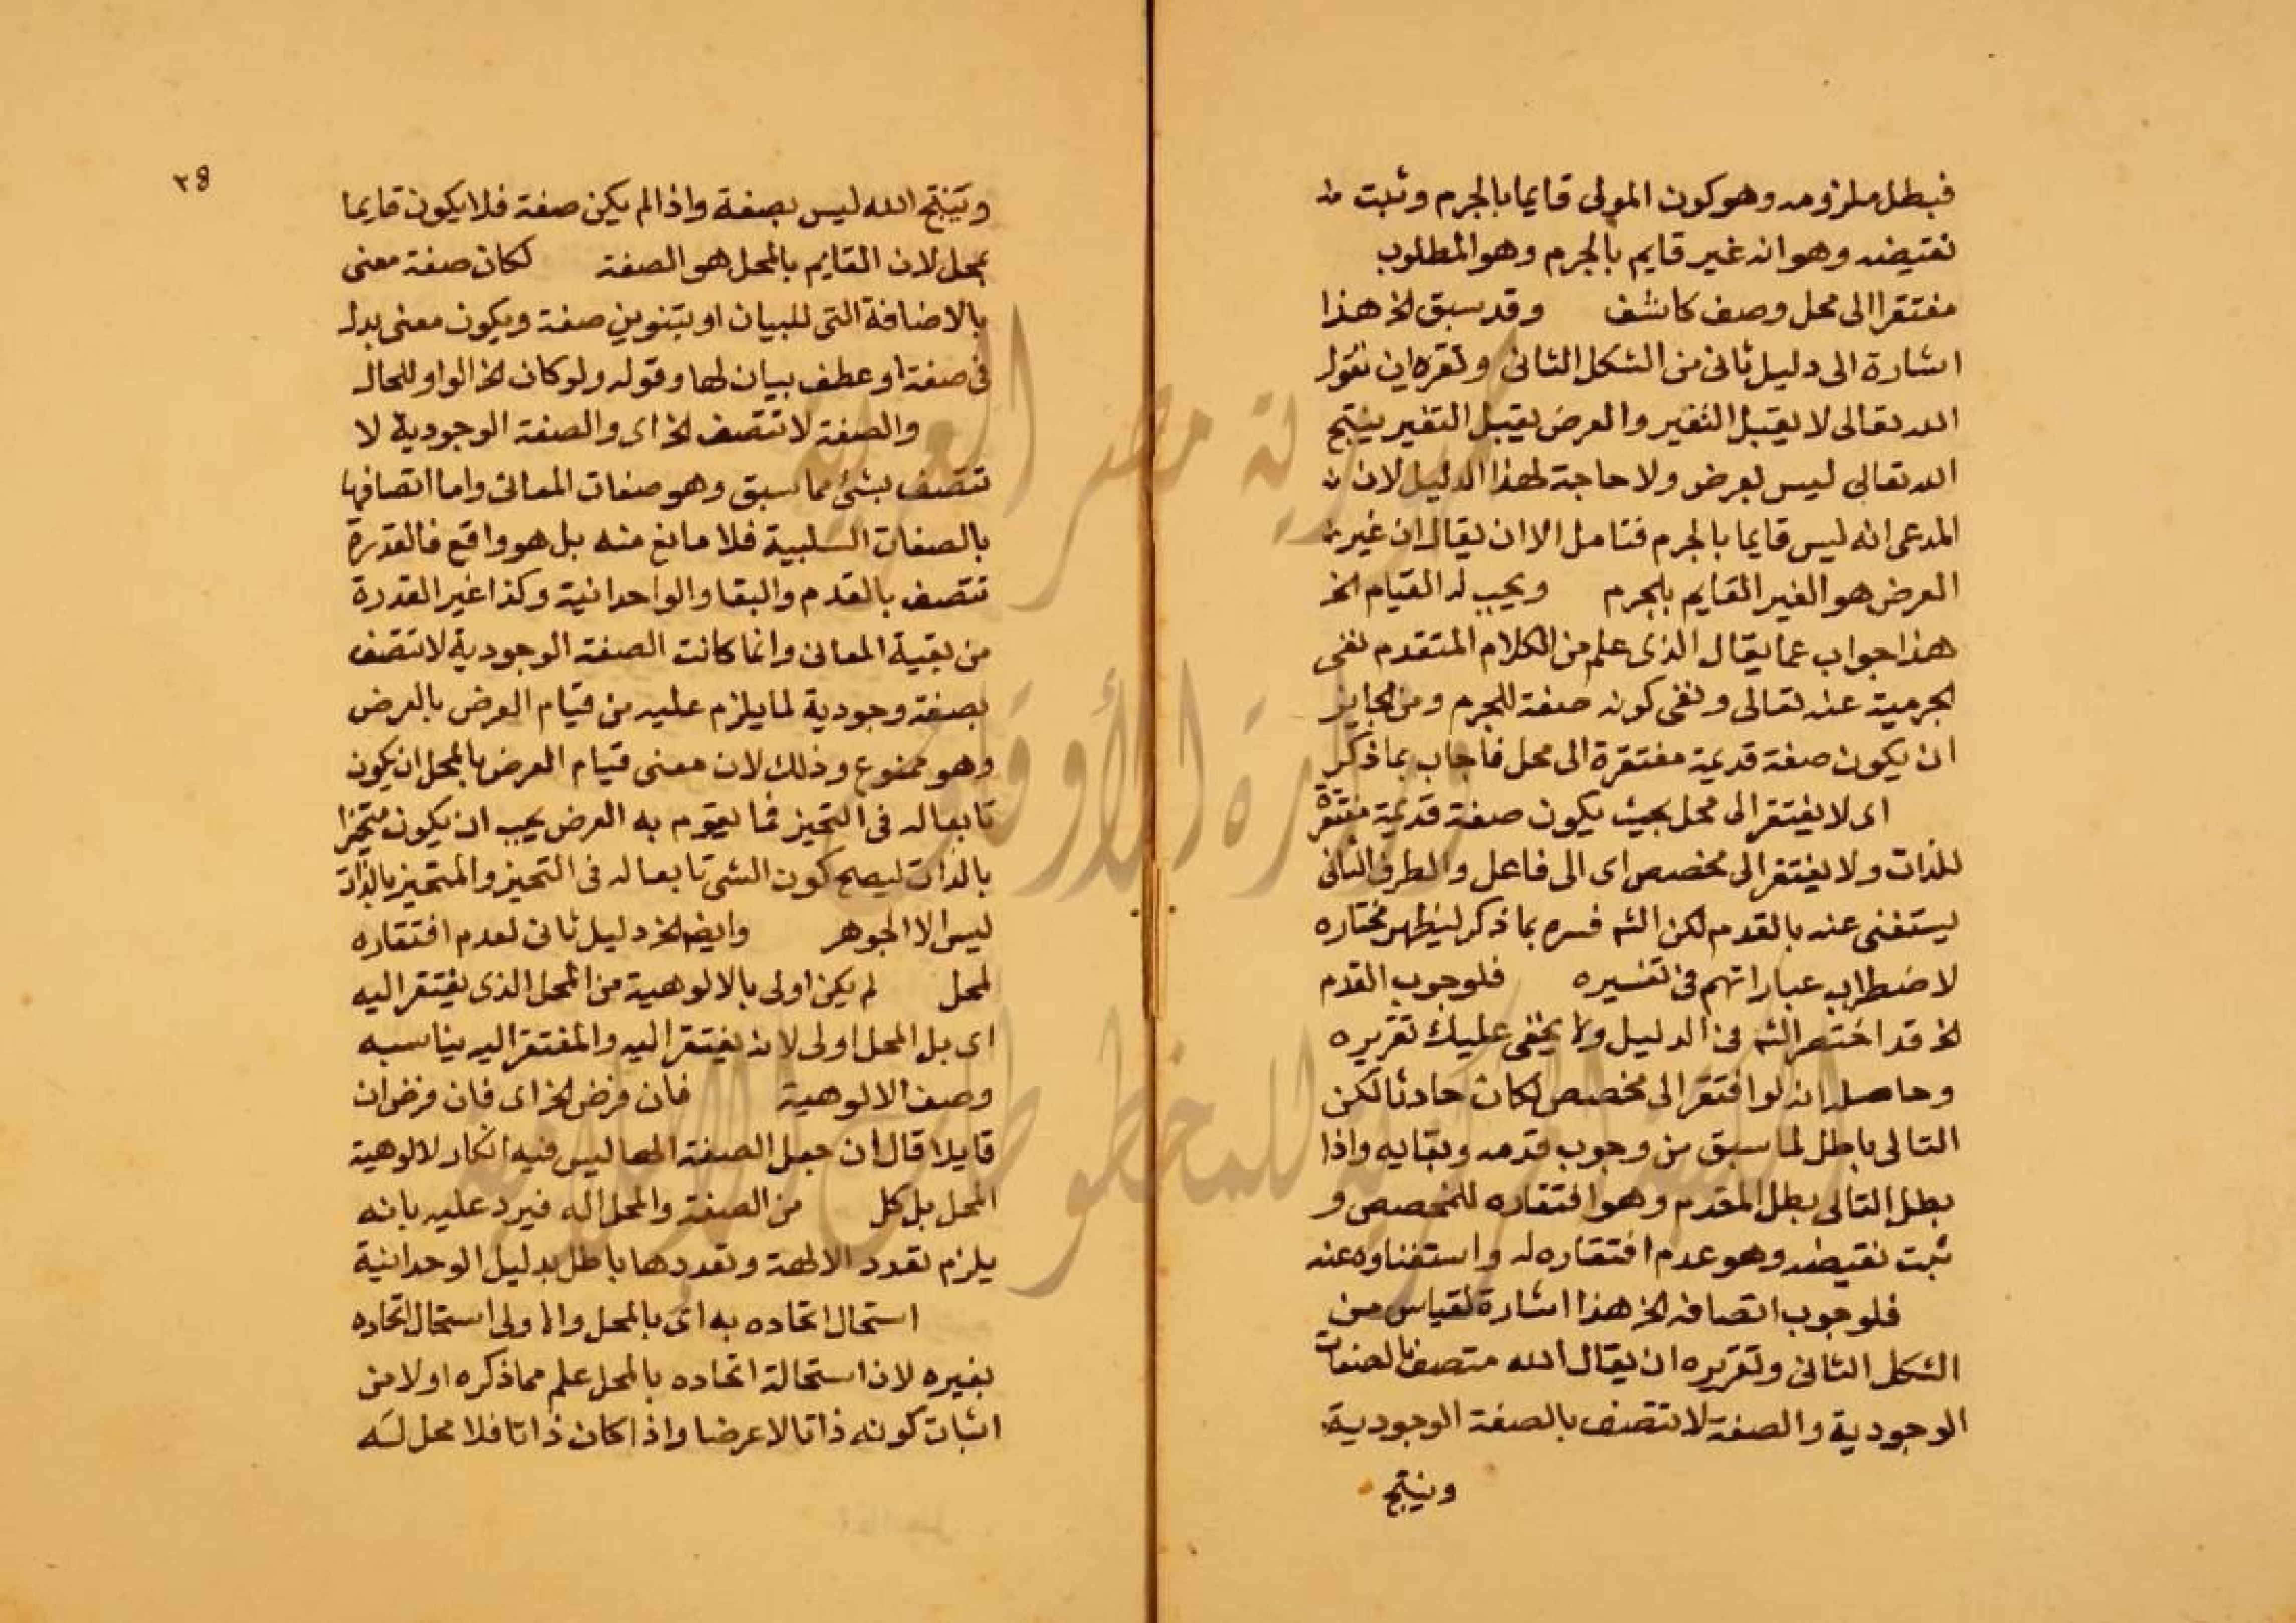 فبطل ملزومه وهو كون المولى قايما بالجرم وثبت
نقيضه وهو انه غير قايم بالجرم وهو المطلوب
مفتقرا الى محل وصف كاشف وقد سبق الخ هذا
اشارة الى دليل ثانى من الشكل الثانى وتقره ان نقول
الله تعالى لا يقبل التغير والعرض يقبل التغير ينتج
الله تعالى ليس بعرض ولا حاجة لهذا الدليل لان
المدعى انه ليس قايما بالجرم فتامل الا ان يقال ان غير
العرض هو الغير القايم بالجرم ويجب له القيام الخ
هذا جواب عما يقال الذى علم من الكلام المتقدم نفى
الجرمية عنه تعالى ونفى كونه صفة للجرم ومن الجايز
ان يكون صفة قديمة مفتقرة الى محل فاجاب بما ذكر
اى لا يفتقر الى محل بحيث يكون صفة قديمة مفتقرة
للذات ولا يفتقر الى مخصص اى الى فاعل والطرف الثانى
يستغنى عنه بالقدم لكن الشه فسره بما ذكر ليظهر مختاره
لاضطراب عباراتهم فى تفسيره فلوجوب القدم
الخ قد اختصر الشه فى الدليل ولا يخفى عليك تقريره
وحاصله انه لو افتقر الى مخصص لكان حادثا لكن
التالى باطل لما سبق من وجوب قدمه وبقايه واذا
بطل التالى بطل المقدم وهو افتقاره للمخصص و
ثبت نقيضه وهو عدم افتقاره له واستغناوه عنه
فلوجوب اتصافه الخ هذا اشارة لقياس من
الشكل الثانى وتقريره ان يقال الله متصف بالصفات
الوجودية والصفة لا تتصف بالصفة الوجودية
وينتج
٣٨
وينتج الله ليس بصفة واذا لم يكن صفة فلا يكون قايما
بمحل لان القايم بالمحل هو الصفة لكان صفة معنى
بالاضافة التى للبيان او بتنوين صفة ويكون معنى بدل
من صفة او عطف بيان لها وقوله ولو كان الخ الواو للحال
والصفة لا تتصف الخ اى والصفة الوجودية لا
تتصف بشئ مما سبق وهو صفات المعانى واما اتصافها
بالصفات السلبية فلا مانع منه بل هو واقع فالقدرة
تتصف بالقدم والبقا والواحدانية وكذا غير القدرة
من بقية المعانى وانما كانت الصفة الوجودية لا تتصف
بصفة وجودية لما يلزم عليه من قيام العرض بالعرض
وهو ممنوع وذلك لان معنى قيام العرض بالمحل ان يكون
تابعا له فى التحيز فما يقوم به العرض يجب ان يكون متحيزا
بالذات ليصح كون الشى تابعا له فى التحيز والمتحيز بالذات
ليس الا الجوهر وايضا الخ دليل ثانى لعدم افتقاره
لمحل لم يكن اولى بالالوهية من المحل الذى يفتقر اليه
اى بل المحل اولى لانه يفتقر اليه والمفتقر اليه يناسبه
وصف الالوهية فان فرض الخ اى فان فرض ان
قايلا قال ان جعل الصفة الها ليس فيه انكار لالوهية
المحل بل كل من الصفة والمحل اله فيرد عليه بانه
يلزم تعدد الالهة وتعددها باطل بدليل الوحدانية
استحال اتحاده به اى بالمحل والاولى استحال اتحاده
بغيره لان استحالة اتحاده بالمحل علم مما ذكره اولا من
اثبات كونه ذاتا لا عرضا واذا كان ذاتا فلا محل له